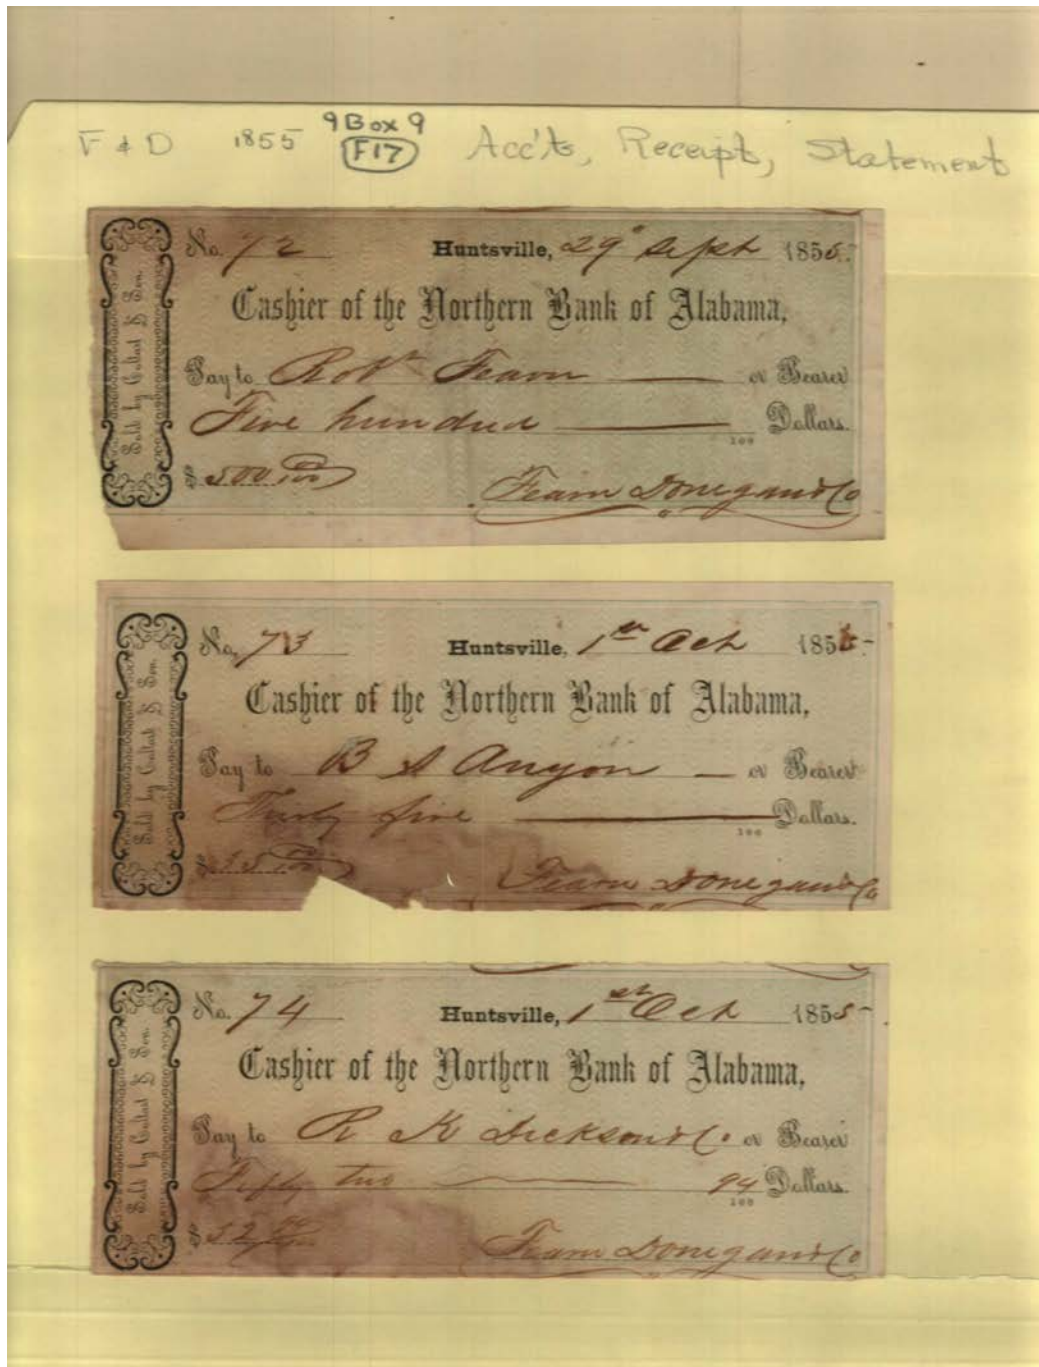 9 Box 9
F & D 1855 F17 Acc'ts, Receipt, Statement
Sold by & Son.
No. 72 Huntsville, 29" Sept 1855.
Cashier of the Northern Bank of Alabama,
Pay to Robt Fearn or Bearer
Five hundred 100 Dollars.
$ 500 00/100 Fearn Donegan & Co
Sold by & Son.
No. 73 Huntsville, 1st Oct 1855
Cashier of the Northern Bank of Alabama,
Pay to B S Anyon or Bearer
Thirty five 100 Dollars.
$ 35 00/100 Fearn Donegan & Co
Sold by & Son.
No. 74 Huntsville, 1st Oct 1855
Cashier of the Northern Bank of Alabama,
Pay to R K Dickson & Co. or Bearer
Fifty two 94/100 Dollars.
$ 52 94/100 Fearn Donegan & Co